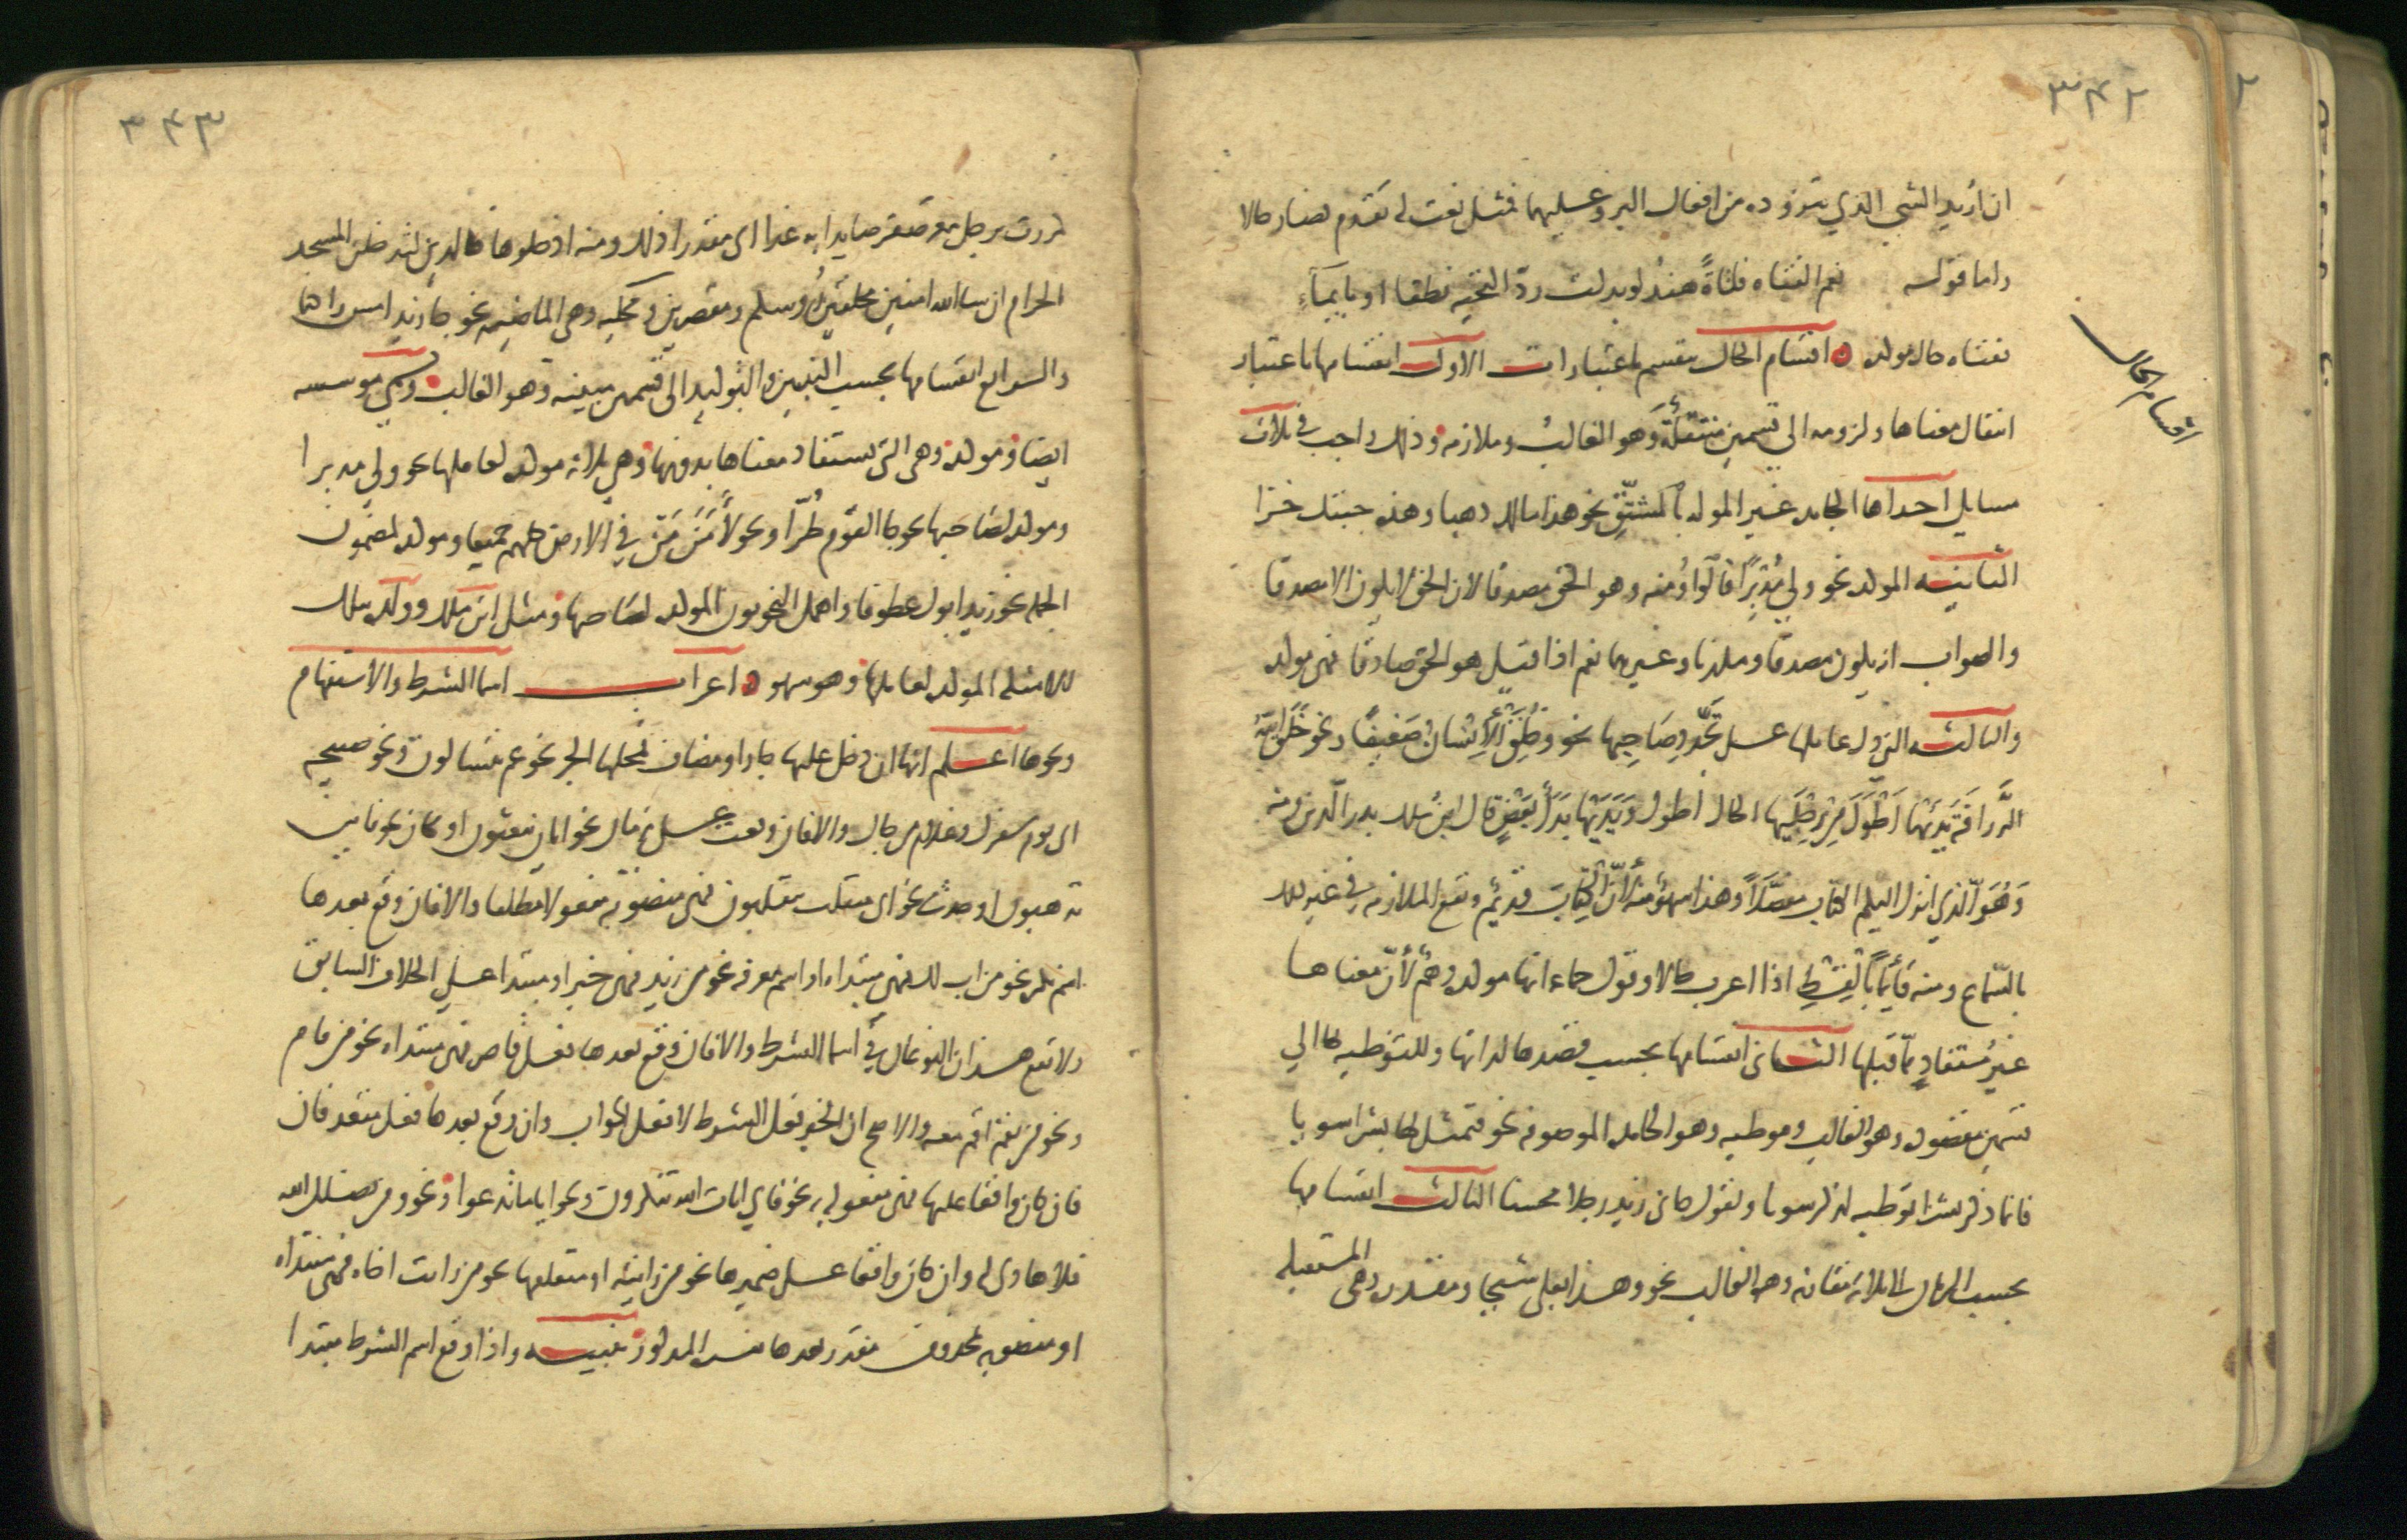 ٣٤٢
ان اريد الشي الذي يتزوده من افعال البر وعليهما فمثل نعت له تقدم فصار حالا
واما قوله نعم الفتاه فتاةً هند لو بذلت ردّ التحيه نطقا او بايماءِ
ففتاه حال موكده اقسام الحال تنقسم باعتبارات الاول انقسامها باعتبار
اقسام الحال
انتقال معناها ولزومه الى قسمين منتقلة وهو الغالب وملازمه وذلك واجب في ثلاث
مسايل احداها الجامده غير الموله بالمشتق نحو هذا مالك ذهبا وهذه جبتك خزا
الثانيه الموكده نحو ولي مُدْبِرًا قالوا ومنه وهو الحق مصدقا لان الحق لا يكون الا مصدقا
والصواب انه يكون مصدقا ومكذبا وغيرهما نعم اذا قيل هو الحق صادقا فهي موكده
والثالثه التي دل عاملها على تجدد صاحبها نحو وخُلِقَ الإنسانُ ضَعِيفًا ونحو خَلَقَ اللهُ
الزَّرافَةَ يَدَيْها أطْوَلَ مِنْ رِجْلَيها الحال اطول ويَدَيْها بَدَلُ بَعْضٍ قال ابن مالك بدر الدين ومنه
وَهُوَ الّذي انزل اليكم الكتاب مفصَّلًا وهذا سهو منه لأنّ الكِتابَ قديمٌ وتقع الملازمه في غير ذلك
بالسّماع ومنه قَائِمًا بالْقِسْطِ اذا اعرب حالا وقول جماعه انها موكده وهْمٌ لأنّ معناها
غيرُ مُستفادٍ مما قبلها الثاني انقسامها بحسب قصدها لذاتها وللتوطيه بها الى
قسمين مقصوده وهو الغالب وموطيه وهو الجامده الموصوفه نحو فتمثل لها بشرا سويا
فانما ذكر بشرا توطيه لذكر سويا وتقول جاني زيد رجلا محسنا الثالث انقسامها
بحسب الزمان الى ثلاثه مقارنه وهو الغالب نحو وهذا بعلي شيخا ومقدره وهي المستقبله
٣٤٣
كمررت برجل معه صقر صايدا به غدا اي مقدرا ذلك ومنه ادخلوها خالدين لتدخلن المسجد
الحرام ان شا الله امنين محلقين رؤسكم ومقصرين ومحكيه وهي الماضيه نحو جا زيد امس راكبا
والرابع انقسامها بحسب التبيين والتوكيد الى قسمين مبينه وهو الغالب وتسمى موسسه
ايضا وموكده وهي التي يستفاد معناها بدونها وهي ثلاثه موكده لعاملها نحو ولى مدبرا
وموكده لصاحبها نحو جا القوم طُرًّا ونحو لآمَنَ مَنْ في الارض كلهم جميعا وموكده لمضمون
الجمله نحو زيد ابوك عطوفا واهمل النحويون الموكده لصاحبها ومثل ابن مالك وولده بتلك
الامثله للموكده لعاملها وهو سهو اعراب اسما الشرط والاستفهام
ونحوها اعلم انها ان دخل عليها جار او مضاف فمحلها الجر نحو عم يتسالون ونحو صبيحه
اي يوم سفرك وغلام من جاك والا فان وقعت على زمان نحو ايان يبعثون او مكان نحو فاين
تذهبون او حدث نحو اي منقلب ينقلبون فهي منصوبه مفعولا مطلقا والا فان وقع بعدها
اسم نكره نحو من اب لك فهي مبتداه او اسم معرفه نحو من زيد فهي خبر او مبتدا على الخلاف السابق
ولا يقع هذان النوعان في اسما الشرط والا فان وقع بعدها فعل قاصر فهي مبتداه نحو من قام
ونحو من يقم اقم معه والاصح ان الخبر فعل الشرط لا فعل الجواب وان وقع بعدها فعل متعد فان
كان واقعا عليها فهي مفعول به نحو فاي ايات الله تنكرون ونحو ايا ما تدعوا ونحو ومن يضلل الله
فلا هادي له وان كان واقعا على ضميرها نحو من رايته او متعلقها نحو من رايت اخاه فهي مبتداه
او منصوبه بمحذوف مقدر بعدها يفسره المذكور تنبيه واذا وقع اسم الشرط مبتدا